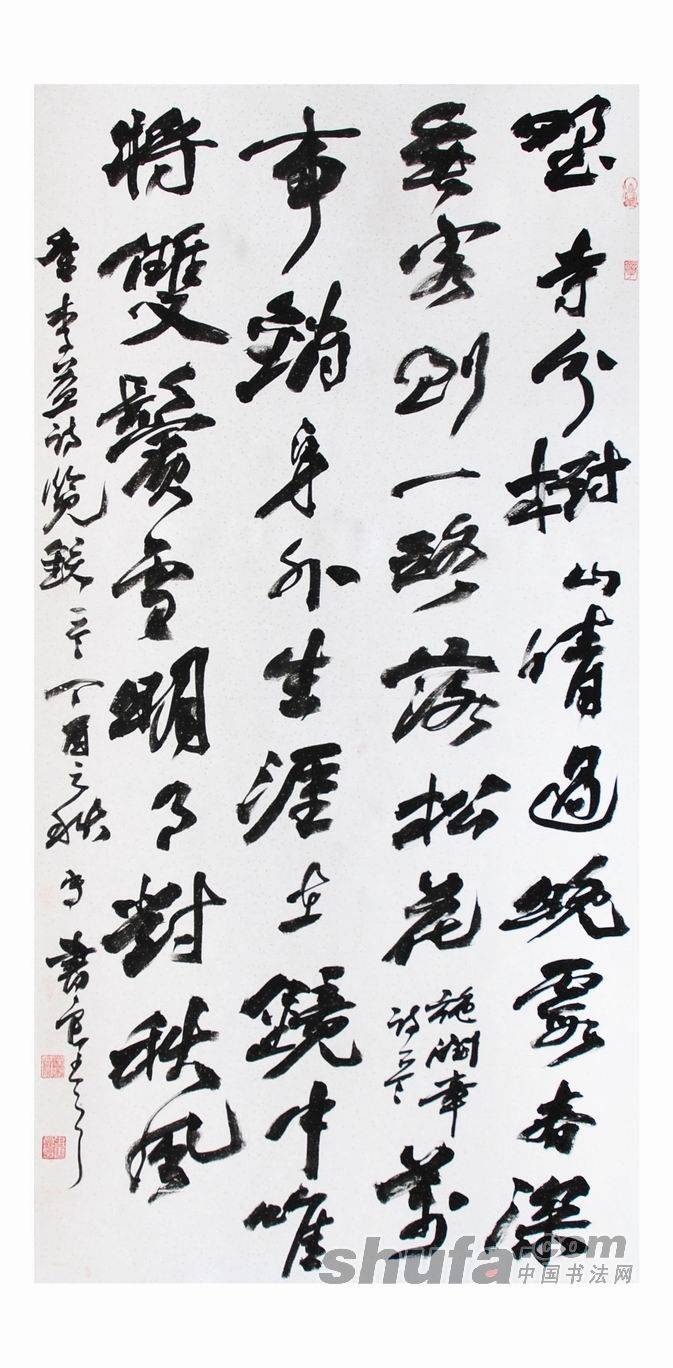 野寺分樹山晴過晚霞春深
無客到一路落松花
施閏章
詩一首
萬
事銷身外生涯在鏡中唯
將雙鬢雪明日對秋風
李益詩覽鏡一首丁酉之秋
shufa.com
中国书法网